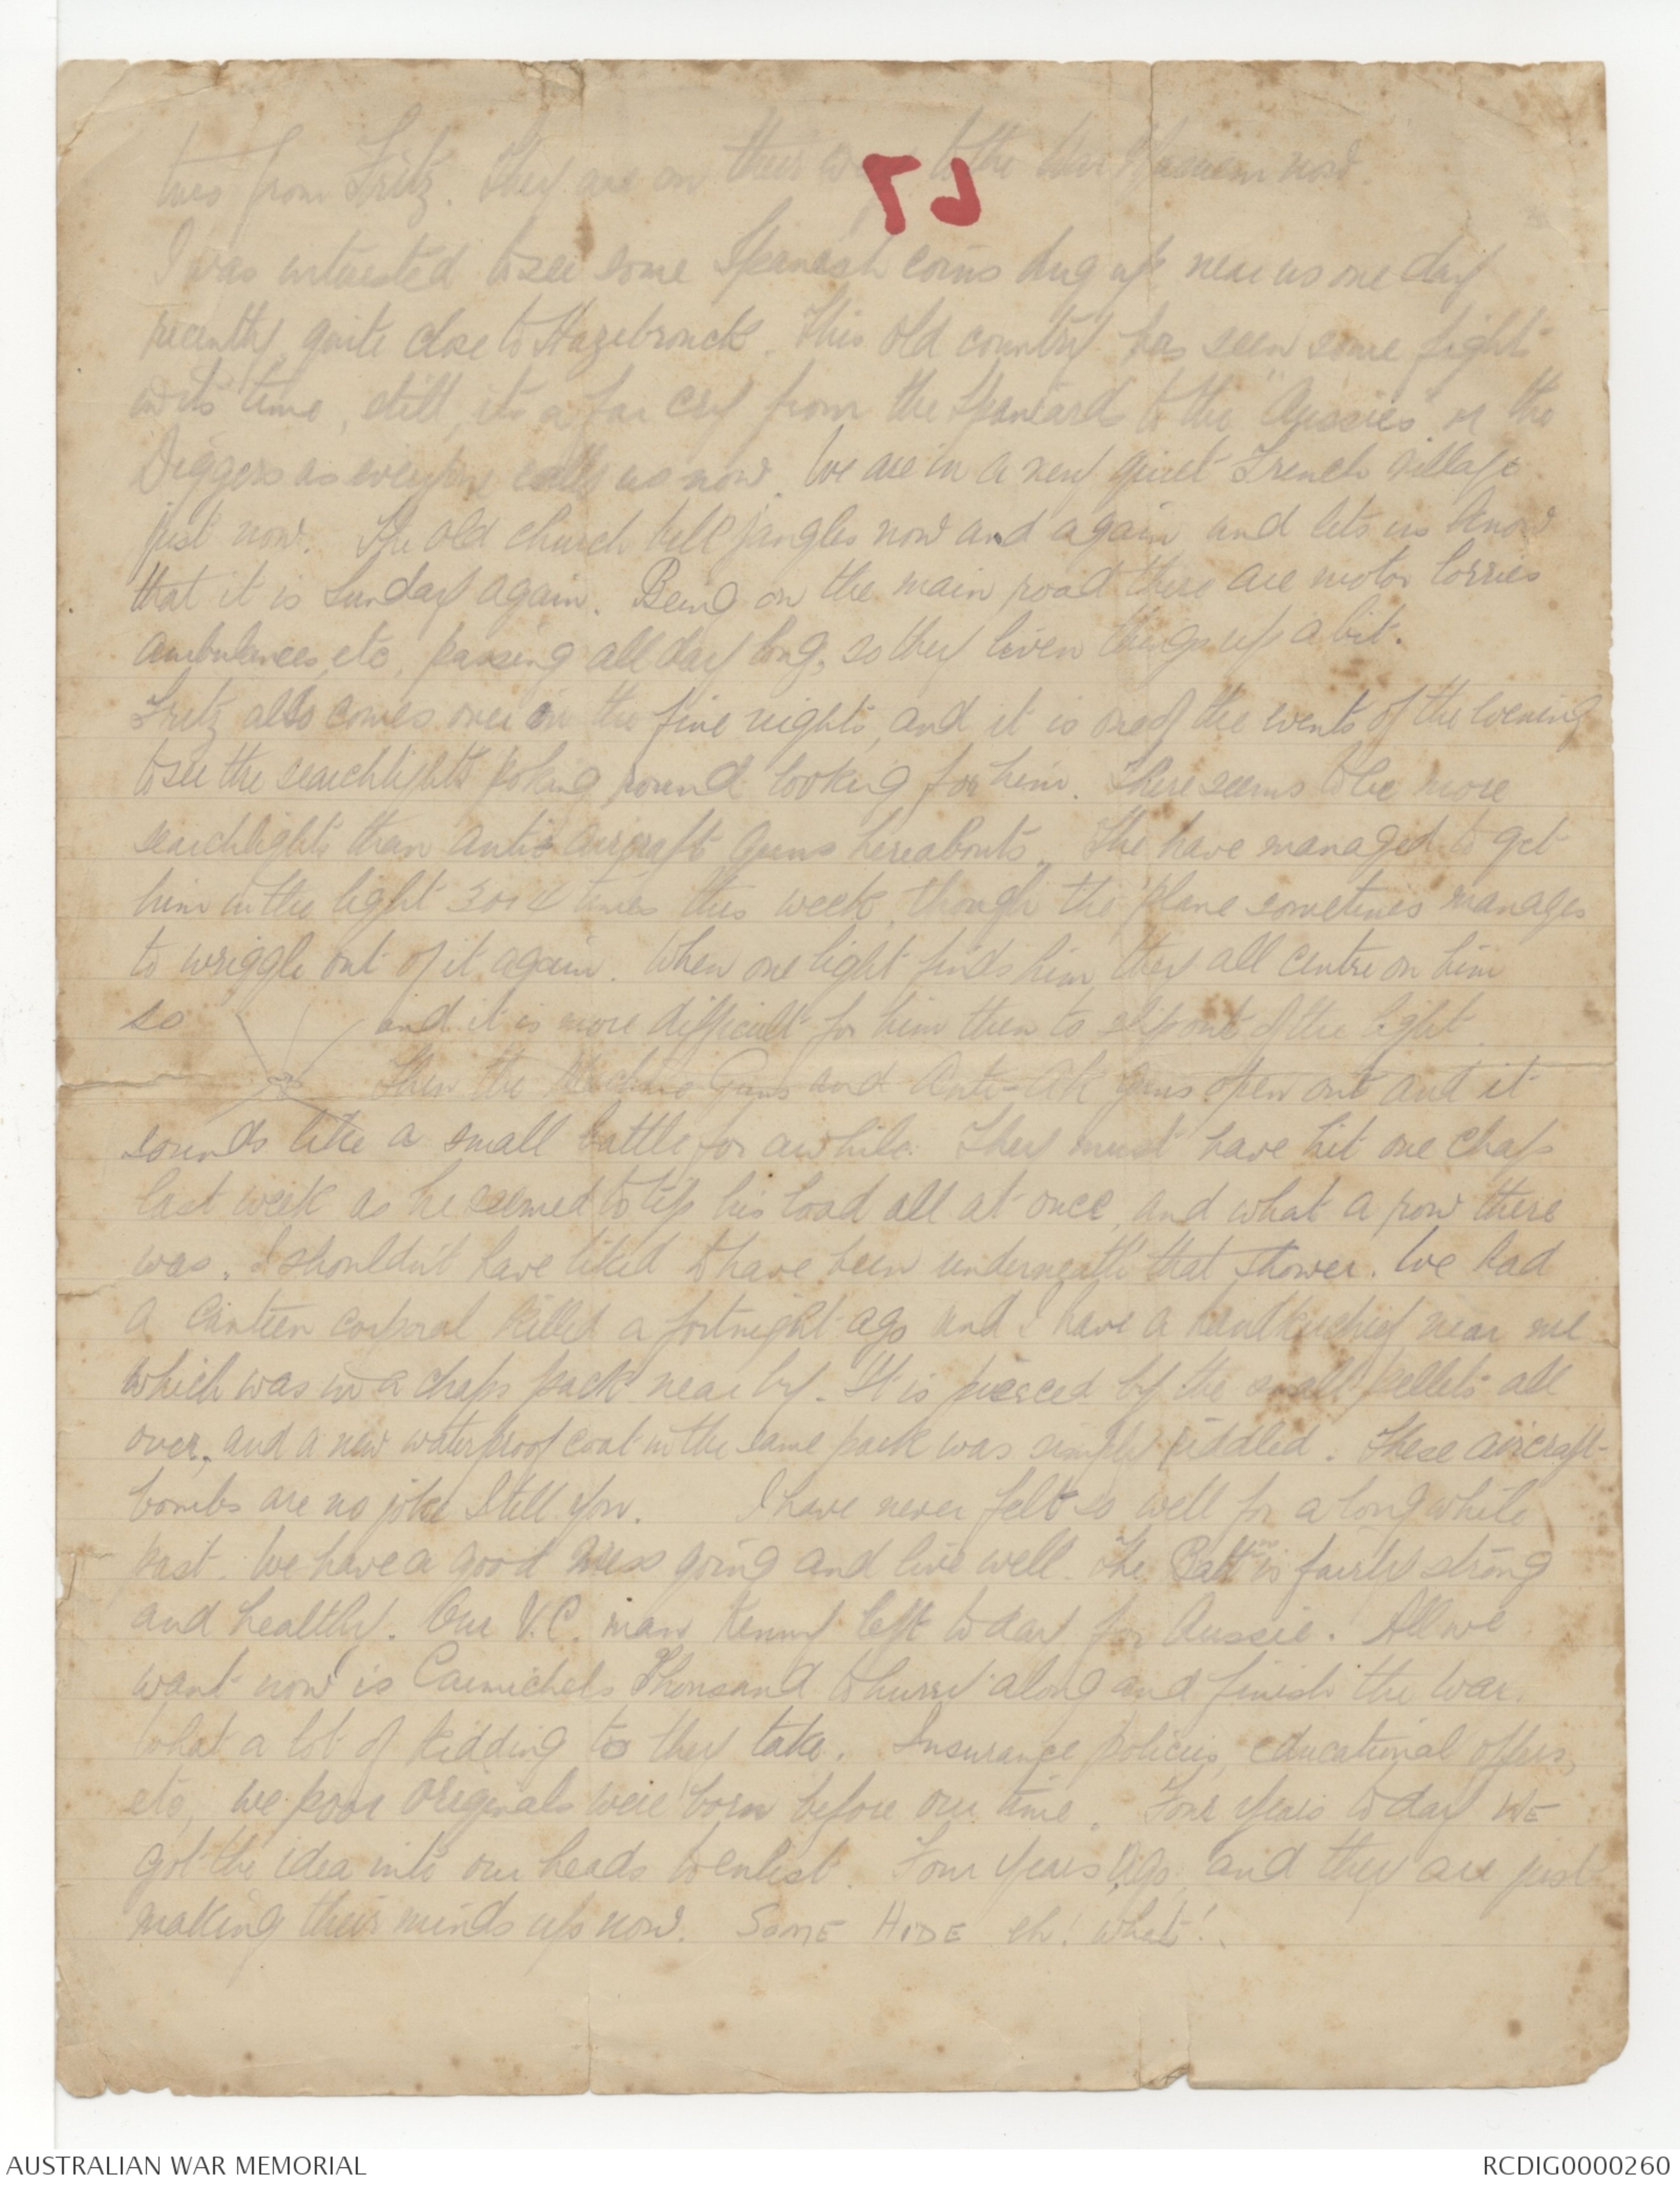 two from Fritz. They are on their way to the War Museum now.
I was interested to see some Spanash coins dug up near us one day
recently, quite close to Hazebrouck. This old country has seen some fights
in its time, still, its a far cry from the Spaniards to the "Aussies" or the
Diggers as everyone calls us now. We are in a very quiet French village
just now. The old church bell jangles now and again and lets us know
that it is Sunday again. Being on the main road there are motor lorries
ambulances, etc, passing all day long, so they liven things up a bit.
Fritz also comes over on the fine nights, and it is one of the events of the evening
to see the searchlights poking round looking for him. There seems to be more
searchlights than anti aircraft guns hereabouts. The have managed to get
him in the light 3 or 4 times this week, though the 'plane sometimes manages
to wriggle out of it again. When one light finds him, they all centre on him
so and it is more difficult for him then to slip out of the light.
Then the Machine Guns and Anti-Ak guns open out and it
sounds like a small battle for awhile. They must have hit one chap
last week as he seemed to tip his load all at once, and what a row there
was. I shouldn't have liked to have been underneath that shower. We had
a canteen corporal killed a fortnight ago and I have a handkerchief near me
which was in a chaps pack near by. It is pierced by the small pellets all
over, and a new waterproof coat in the same pack was simply riddled. These aircraft
bombs are no joke I tell you. I have never felt so well for a long while
past. We have a good mess going and live well. The Battn is fairly strong
and healthy. Our V.C. man Kenny left today for Aussie. All we
want now is Carmichels Thousand to hurry along and finish the war.
What a lot of kidding to they take. Insurance policies, educational offers,
etc, we poor Originals were born before our time. Four years today WE
got the idea into our heads to enlist. Four years ago, and they are just
making their minds up now. SOME HIDE eh! what!
AUSTRALIAN WAR MEMORIAL
RCDIG0000260